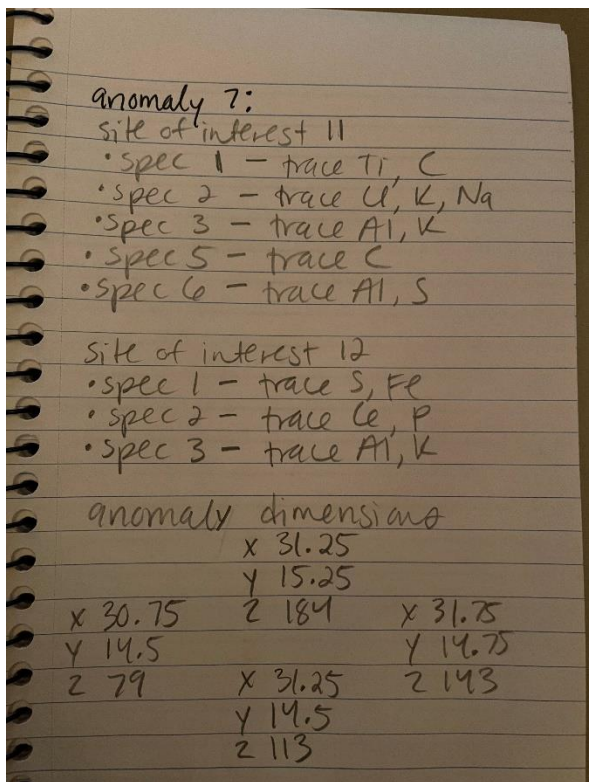 anomaly 7:
site of interest 11
• spec 1 - trace Ti, C
• spec 2 - trace Cl, K, Na
• spec 3 - trace Al, K
• spec 5 - trace C
• spec 6 - trace Al, S
site of interest 12
• spec 1 - trace S, Fe
• spec 2 - trace Ce, P
• spec 3 - trace Al, K
anomaly dimensions
x 31.25
y 15.25
z 184
x 30.75
y 14.5
z 79
x 31.75
y 14.75
z 143
x 31.25
y 14.5
z 113